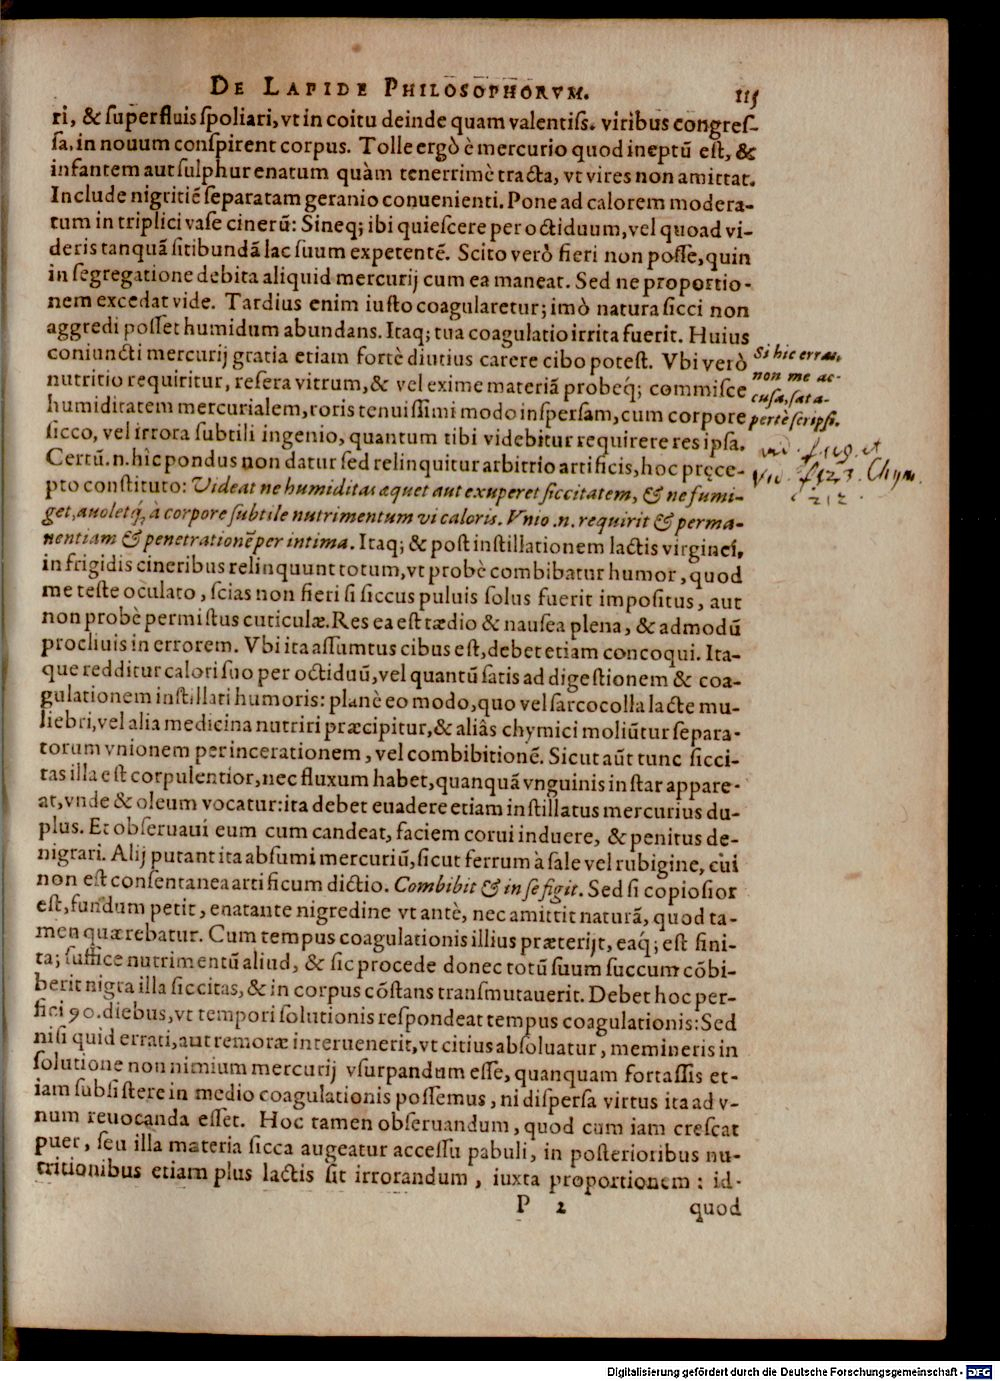 DE LAPIDE PHILOSOPHORVM. 115
ri, & ſuperfluis ſpoliari, vt in coitu deinde quam valentiſs. viribus congreſ-
ſa, in nouum conſpirent corpus. Tolle ergò è mercurio quod ineptũ eſt, &
infantem aut ſulphur enatum quàm tenerrimè tracta, vt vires non amittat.
Include nigritiẽ ſeparatam geranio conuenienti. Pone ad calorem modera-
tum in triplici vaſe cinerũ: Sineq; ibi quieſcere per octiduum, vel quoad vi-
deris tanquã ſitibundã lac ſuum expetentẽ. Scito verò fieri non poſſe, quin
in ſegregatione debita aliquid mercurij cum ea maneat. Sed ne proportio-
nem excedat vide. Tardius enim iuſto coagularetur; imò natura ſicci non
aggredi poſſet humidum abundans. Itaq; tua coagulatio irrita fuerit. Huius
coniuncti mercurij gratia etiam fortè diutius carere cibo poteſt. Vbi verò
nutritio requiritur, reſera vitrum, & vel exime materiã probeq; commiſce
humiditatem mercurialem, roris tenuiſſimi modo inſperſam, cum corpore
ſicco, vel irrora ſubtili ingenio, quantum tibi videbitur requirere res ipſa.
Certũ.n.hìc pondus non datur ſed relinquitur arbitrio artificis, hoc pręce-
pto conſtituto: Videat ne humiditas æquet aut exuperet ſiccitatem, & ne fumi-
get, auoletq́; à corpore ſubtile nutrimentum vi caloris. Vnio .n. requirit & perma-
nentiam & penetrationẽ per intima. Itaq; & poſt inſtillationem lactis virginei,
in frigidis cineribus relinquunt totum, vt probè combibatur humor, quod
me teſte oculato, ſcias non fieri ſi ſiccus puluis ſolus fuerit impoſitus, aut
non probè permiſtus cuticulæ. Res ea eſt tædio & nauſea plena, & admodũ
procliuis in errorem. Vbi ita aſſumtus cibus eſt, debet etiam concoqui. Ita-
que redditur calori ſuo per octiduũ, vel quantũ ſatis ad digeſtionem & coa-
gulationem inſtillati humoris: planè eo modo, quo vel ſarcocolla lacte mu-
liebri, vel alia medicina nutriri præcipitur, & aliâs chymici moliũtur ſepara-
torum vnionem per incerationem, vel combibitionẽ. Sicut aũt tunc ſicci-
tas illa eſt corpulentior, nec fluxum habet, quanquã vnguinis inſtar appare-
at, vnde & oleum vocatur: ita debet euadere etiam inſtillatus mercurius du-
plus. Et obſeruaui eum cum candeat, faciem corui induere, & penitus de-
nigrari. Alij putant ita abſumi mercuriũ, ſicut ferrum à ſale vel rubigine, cui
non eſt conſentanea artificum dictio. Combibit & in ſe figit. Sed ſi copioſior
eſt, fundum petit, enatante nigredine vt antè, nec amittit naturã, quod ta-
men quærebatur. Cum tempus coagulationis illius præterijt, eaq́; eſt fini-
ta; ſuffice nutrimentũ aliud, & ſic procede donec totũ ſuum ſuccum cõbi-
berit nigra illa ſiccitas, & in corpus cõſtans tranſmutauerit. Debet hoc per-
fici 90. diebus, vt tempori ſolutionis reſpondeat tempus coagulationis: Sed
niſi quid errati, aut remoræ interuenerit, vt citius abſoluatur, memineris in
ſolutione non nimium mercurij vſurpandum eſſe, quanquam fortaſſis et-
iam ſubſiſtere in medio coagulationis poſſemus, ni diſperſa virtus ita ad v-
num reuocanda eſſet. Hoc tamen obſeruandum, quod cum iam creſcat
puer, ſeu illa materia ſicca augeatur acceſſu pabuli, in poſterioribus nu-
tritionibus etiam plus lactis ſit irrorandum, iuxta proportionem: id-
P 2 quod
Si hic erras,
non me ac-
cuſa, ſat a-
pertè ſcripſi.
vid. f. 119. et
Vid. f. 123. Chym.
212
Digitalisierung gefördert durch die Deutsche Forschungsgemeinschaft - DFG